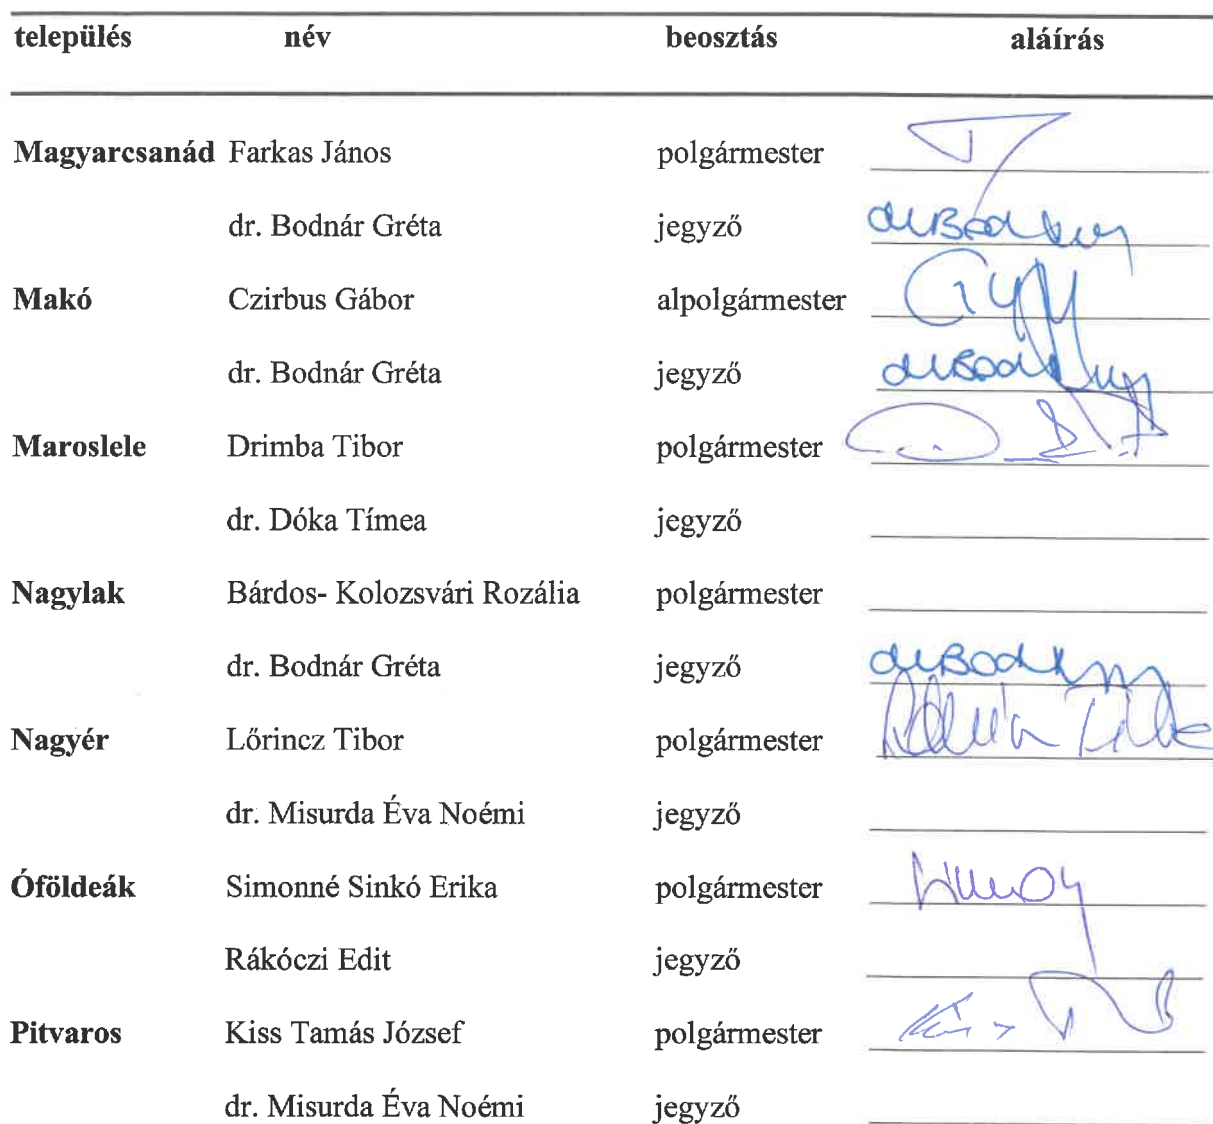 település név beosztás aláírás
Magyarcsanád Farkas János polgármester
dr. Bodnár Gréta jegyző dr Bodnár
Makó Czirbus Gábor alpolgármester
dr. Bodnár Gréta jegyző dr Bodnár
Maroslele Drimba Tibor polgármester
dr. Dóka Tímea jegyző
Nagylak Bárdos- Kolozsvári Rozália polgármester
dr. Bodnár Gréta jegyző dr Bodnár
Nagyér Lőrincz Tibor polgármester
dr. Misurda Éva Noémi jegyző
Óföldeák Simonné Sinkó Erika polgármester
Rákóczi Edit jegyző
Pitvaros Kiss Tamás József polgármester
dr. Misurda Éva Noémi jegyző